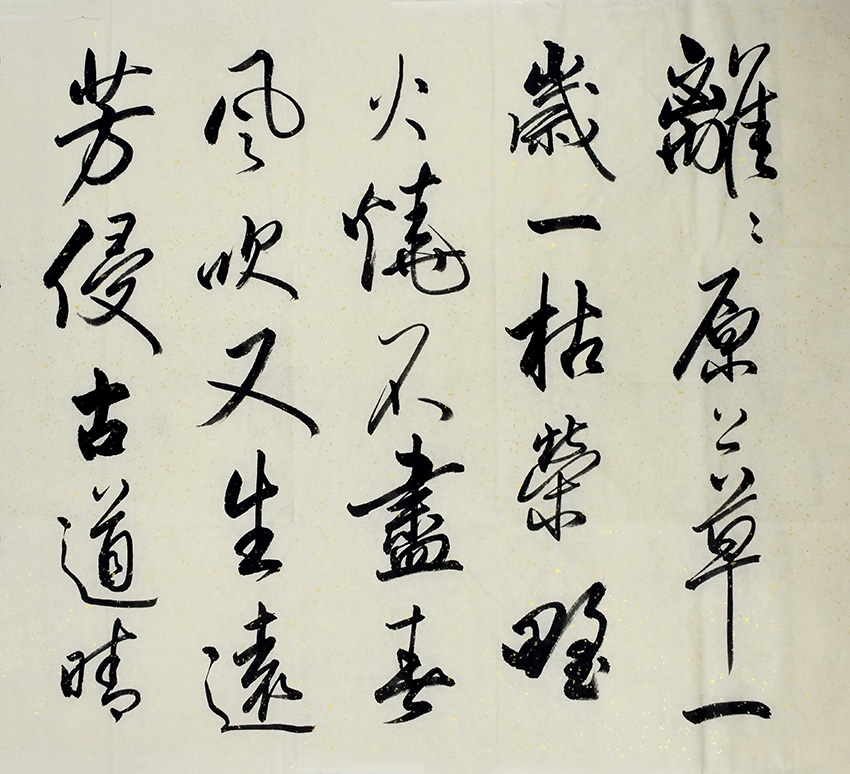 離〻原上草一
歲一枯榮野
火燒不盡春
風吹又生遠
芳侵古道晴